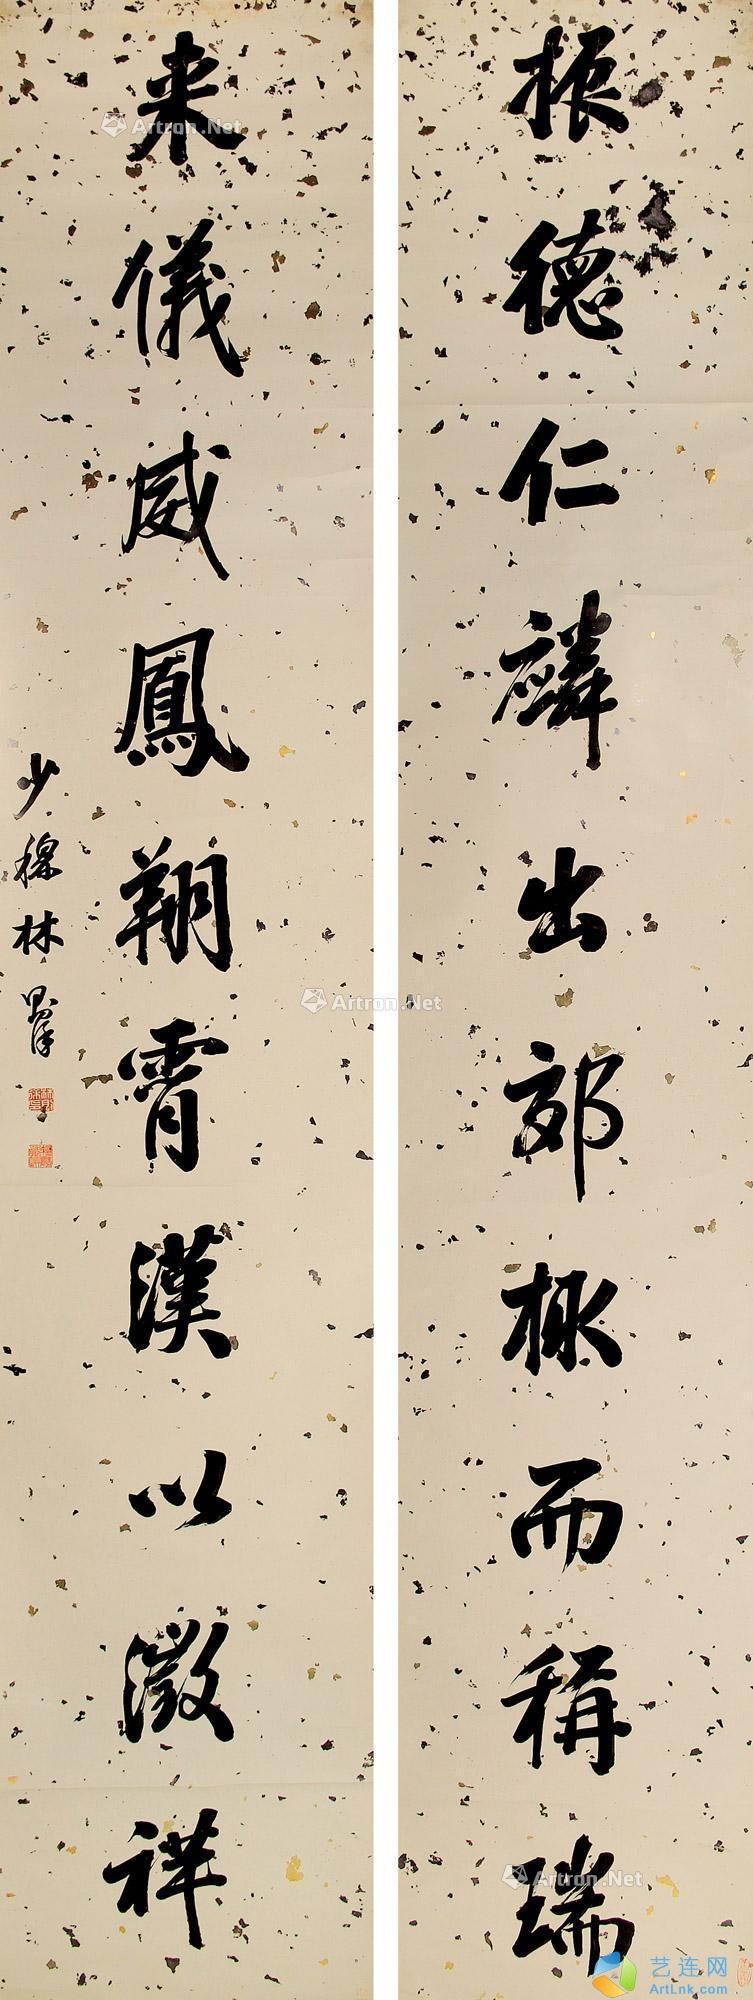 振德仁麟出郊椒而稱瑞
来儀威鳳翔霄漢以徵祥
少穆林則徐
Artron.Net
Artron.Net
Artron.Net
艺连网
ArtLnk.com